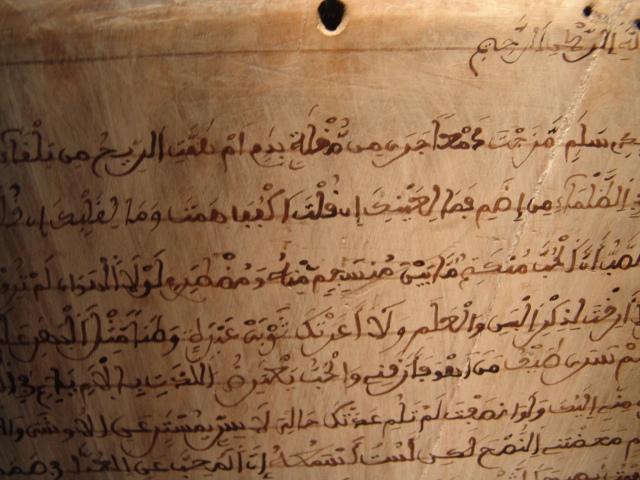 الله الرَّحْمٰنِ الرَّحِيمِ
سَلَمِ مَزَجْتَ دَمْعًا جَرَى مِن مُّقْلَةٍ بِدَمِ امْ هَبَّتِ الرِّيحُ مِن تِلْقَاء
الظَّلْمَاءِ مِن إِضَمِ فَمَا لِعَيْنَيْكَ إِن قُلْتَ اكْفُفَا هَمَتَا وَمَا لِقَلْبِكَ إِن
الصَّبُّ أَنَّ الْحُبَّ مُنكَتِمٌ مَا بَيْنَ مُنسَجِمٍ مِّنْهُ وَمُضْطَرِمِ لَوْلَا الْهَوَى لَمْ تُرِقْ
أَرِقْتَ لِذِكْرِ الْبَنِ وَالْعَلَمِ وَلَا أَعَرَتْكَ ثَوْبَيْ عَبْرَةٍ وَضَنًا مِّثْلَ الْبَهَرِ
سَرَى طَيْفُ مَن أَهْوَى فَأَرَّقَنِي وَالْحُبُّ يَعْتَرِضُ اللَّذَّتِ بِالْأَلَمِ
مِنِّي إِلَيْكَ وَلَوَ انصَفْتَ لَمْ تَلُمِ عَدَتْكَ حَالِيَ لَا سِرِّي بِمُسْتَتِرٍ عَنِ الْوُشَاةِ وَلَا
مَحَضْتَنِي النُّصْحَ لَكِن لَسْتُ أَسْمَعُهُ إِنَّ الْمُحِبَّ عَنِ الْعُذَّالِ فِي صَمَمِ